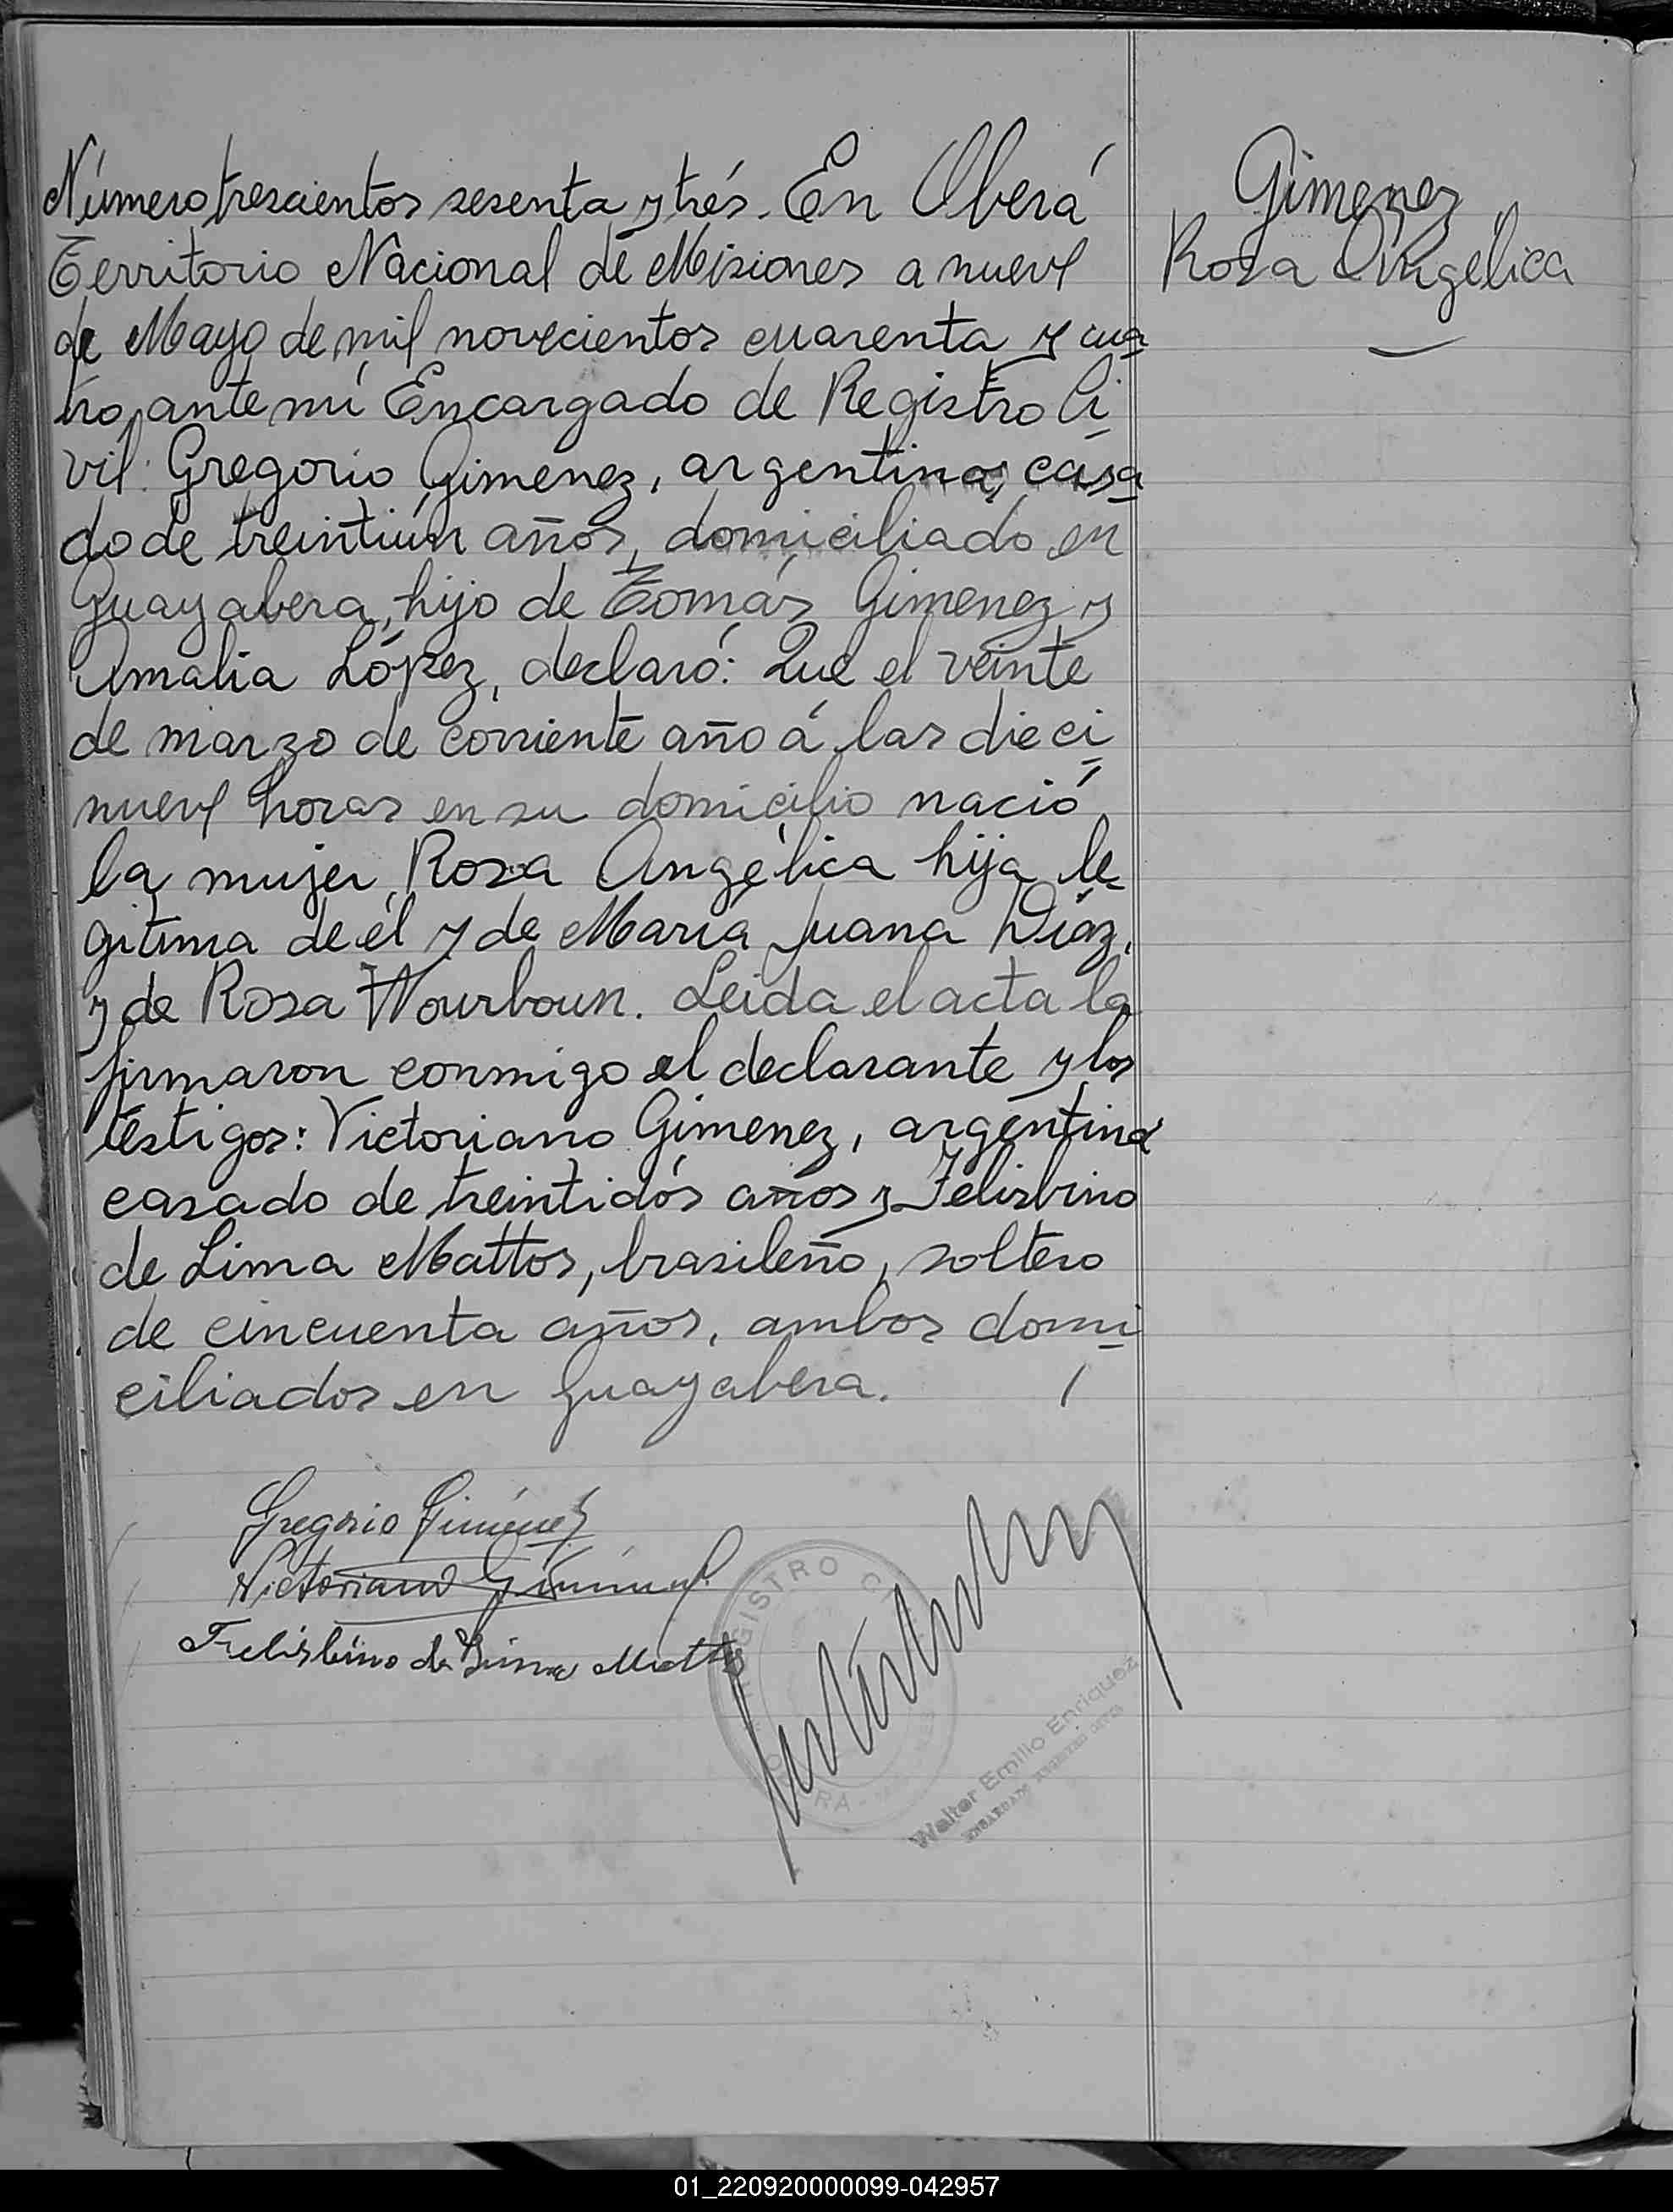 Número trescientos sesenta y trés. En Oberá
Territorio Nacional de Misiones a nueve
de Mayo de mil novecientos cuarenta y cua
tro, ante mí Encargado de Registro Ci
vil: Gregorio Gimenez, argentino, casa
do de treintiún años, domiciliado en
Guayabera, hijo de Tomás Gimenez y
Amalia López, declaró: Que el veinte
de marzo de corriente año á las dieci
nueve horas en su domicilio nació
la mujer, Rosa Angélica hija le
gitima de él y de María Juana Díaz,
y de Rosa Wourboun. Leida el acta la
firmaron conmigo el declarante y los
testigos: Victoriano Gimenez, argentino
casado de treintidós años y Felisbino
de Lima Mattos, brasileño, soltero
de cincuenta años, ambos domi
ciliados en Guayabera.
Gimenez
Rosa Angélica
Gregorio Giménez
Victoriano Gimenez
Felisbino de Lima Mattos
REGISTRO
Walter Emilio Enriquez
ENCARGADO REGISTRO CIVIL
01_220920000099-042957